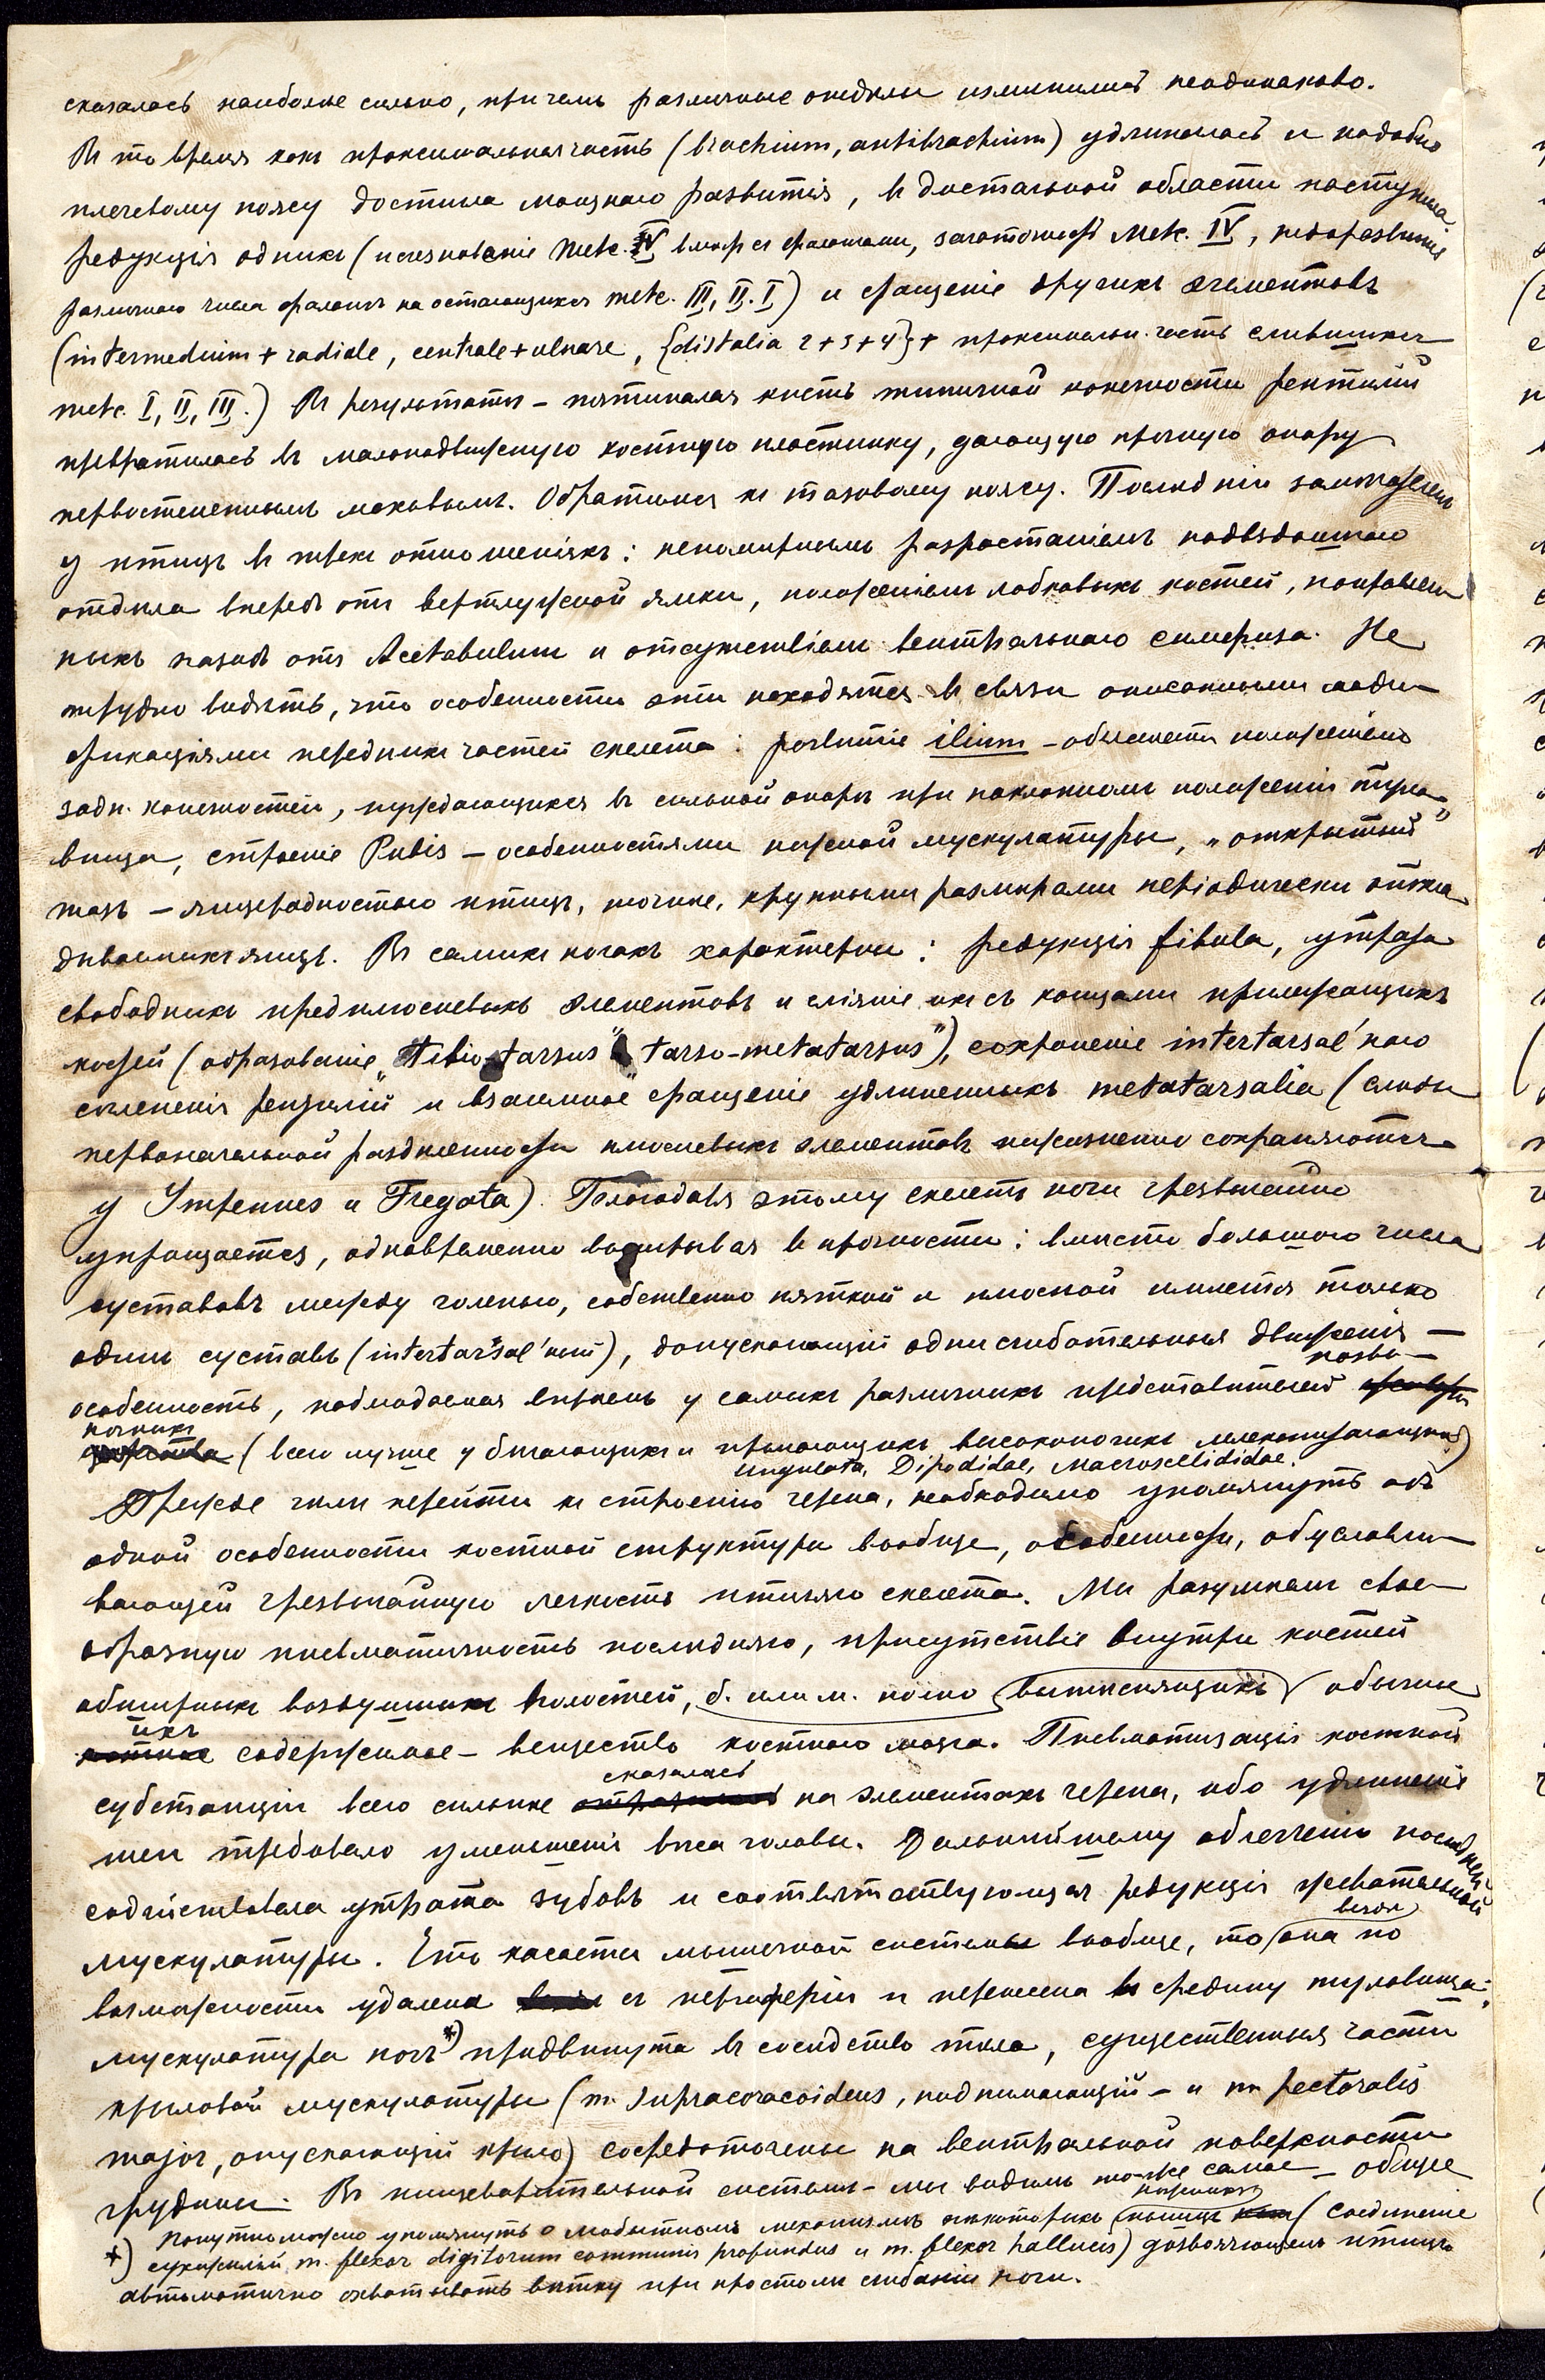 сказалось наиболѣе сильно, причемъ различные отдѣлы измѣнились неодинаково.
Въ то время какъ проксимальная часть (brachium, antibrachium) удлинилась и подобно
плечевому поясу достигла мощнаго развитія, въ дистальной области наступила
редукція однихъ (исчезновеніе metc. IV вмѣстѣ съ фалангами, зачаточность Metc. IV, недоразвитіе
различнаго числа фалангъ на остающихся metc. III, II, I) и сращеніе другихъ элементовъ
(intermedium + radiale, centrale + ulnare, {distalia 2+3+4} + проксимальн. часть слившихся
metc. I, II, III.) Въ результатѣ – пятипалая кисть типичной конечности рептилій
превратилась въ малоподвижную костную пластинку, дающую прочную опору
первостепеннымъ маховымъ. Обратимся къ тазовому поясу. Послѣдній
у птицъ въ трехъ отношеніяхъ: непомѣрнымъ разростаніемъ подвздошнаго
отдѣла впередъ отъ вертлужной ямки, положеніемъ лобковыхъ костей, направлен
ныхъ назадъ отъ Acetabulum и отсутствіемъ вентральнаго симфиза. Не
трудно видѣть, что особенности эти находятся въ связи описанными моди–
фикаціями переднихъ частей скелета: развитіе ilium – объясняется положеніемъ
задн. конечностей, нуждающихся въ сильной опорѣ при наклонномъ положеніи туло–
вища, строеніе Pubis – особенностями ножной мускулатуры, „открытый"
тазъ – яйцеродностью птицъ, точнѣе, крупными размѣрами періодически откла
дываемыхъ яицъ. Въ самихъ ногахъ характерны: редукція fibula, утрата
свободныхъ предплюсневыхъ элементовъ и сліяніе ихъ съ концами прилежащихъ
костей (образованіе „tibio-tarsus" „tarso-metatarsus"), сохраненіе intertarsal'наго
сочлененія рептилій и взаимное сращеніе удлиненныхъ metatarsalia (слѣды
первоначальной раздѣленности плюсневыхъ элементовъ пожизненно сохраняются
у Impennes и Fregata). Благодаря этому скелетъ ноги чрезвычайно
упрощается, одновременно выигрывая въ прочности: вмѣсто большого числа
суставовъ между голенью, собственно пяткой и плюсной имѣется только
одинъ суставъ (intertarsal'ный), допускающій одни сгибательныя движенія –
особенность, наблюдаемая впрочемъ у самихъ различныхъ представителей позво–
ночныхъ (всего лучше у бѣгающихъ и прыгающихъ высоконогихъ млекопитающихъ)
Ungulata, Dipodidae, Macroscelididae.
Прежде чѣмъ перейти къ строенію черепа, необходимо упомянуть объ
одной особенности костной структуры вообще, особенности, обусловли–
вающей чрезвычайную легкость птичьяго скелета. Мы разумѣемъ свое–
образную пневматичность послѣдняго, присутствіе внутри костей
обширныхъ воздушныхъ полостей, б. или м. полно вытѣсняющихъ обычное
ихъ содержимое – вещество костнаго мозга. Пневматизація костной
субстанціи всего сильнѣе сказалась на элементахъ черепа, ибо удлиненіе
шеи требовало уменьшенія вѣса головы. Дальнѣйшему облегченію послѣдней
содѣйствовала утрата зубовъ и соотвѣтствующая редукція жевательной
мускулатуры. Что касается мышечной системы вообще, то она по
возможности удалена съ периферіи и перенесена въ средину туловища:
мускулатура ногъ*) придвинута въ сосѣдство тѣла, существенныя части
крыловой мускулатуры (m. supracoracoideus, поднимающій – и m. pectoralis
major, опускающій крыло) сосредоточены на вентральной поверхности
грудины. Въ пищеварительной системѣ – мы видимъ то-же самое – общее
*) Попутно можно упомянуть о любопытномъ механизмѣ нѣкоторыхъ птицъ (соединеніе
сухожилій m. flexor digitorum communis profundus и m. flexor hallucis) дозволяющемъ птицѣ
автоматично охватывать вѣтку при простомъ сгибаніи ноги.